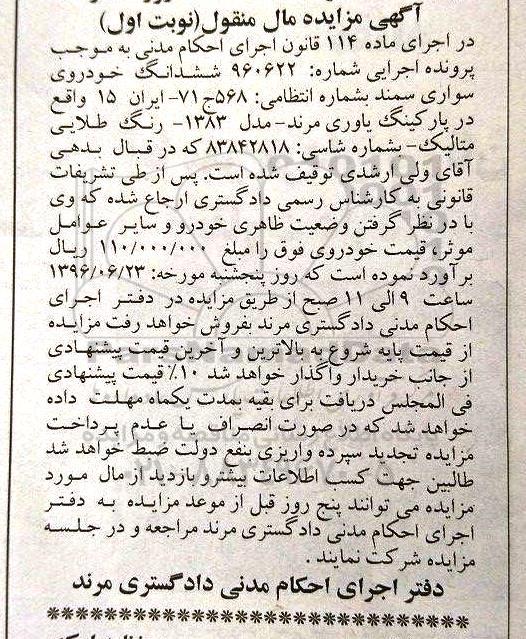 آگهی مزایده مال منقول(نوبت اول)
در اجرای ماده ۱۱۴ قانون اجرای احکام مدنی به موجب
پرونده اجرایی شماره: ۹۶۰۶۲۲ ششدانگ خودروی
سواری سمند بشماره انتظامی: ۵۶۸ج۷۱- ایران ۱۵ واقع
در پارکینگ یاوری مرند- مدل ۱۳۸۳- رنگ طلایی
متالیک- بشماره شاسی: ۸۳۸۴۲۸۱۸ که در قبال بدهی
آقای ولی ارشدی توقیف شده است. پس از طی تشریفات
قانونی به کارشناس رسمی دادگستری ارجاع شده که وی
با در نظر گرفتن وضعیت ظاهری خودرو و سایر عوامل
موثر، قیمت خودروی فوق را مبلغ ۱۱۰/۰۰۰/۰۰۰ ریال
برآورد نموده است که روز پنجشنبه مورخه: ۱۳۹۶/۰۶/۲۳
ساعت ۹ الی ۱۱ صبح از طریق مزایده در دفتر اجرای
احکام مدنی دادگستری مرند بفروش خواهد رفت مزایده
از قیمت پایه شروع به بالاترین و آخرین قیمت پیشنهادی
از جانب خریدار واگذار خواهد شد ۱۰٪ قیمت پیشنهادی
فی المجلس دریافت برای بقیه بمدت یکماه مهلت داده
خواهد شد که در صورت انصراف یا عدم پرداخت
مزایده تجدید سپرده واریزی بنفع دولت ضبط خواهد شد
طالبین جهت کسب اطلاعات بیشترو بازدید از مال مورد
مزایده می توانند پنج روز قبل از موعد مزایده به دفتر
اجرای احکام مدنی دادگستری مرند مراجعه و در جلسه
مزایده شرکت نمایند.
دفتر اجرای احکام مدنی دادگستری مرند